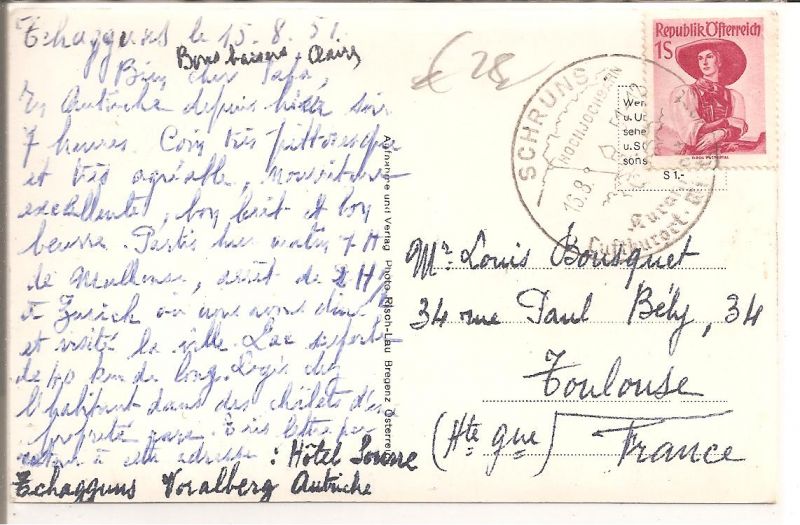 Tchagguns le 15.8.51.
Bons baisers Claire
Bien cher Papa,
En Autriche depuis hier soir
7 heures. Coin très pittoresque
et très agréable, nourriture
excellente, bon lait et bon
beurre. Partis hier matin 7 H
de Mulhouse, arrêt de 2 H
à Zurich où nous avons diné
et visité la ville. Lac superbe
de 40 km de long. Logés chez
l'habitant dans des châlets d'une
propreté rare. Ecris lettre par
retour à cette adresse : Hôtel Sonne
Tchagguns Voralberg Autriche
Aufnahme und Verlag Photo Risch-Lau Bregenz Österreich
Republik Österreich
1S
SCHRUNS
HOCHJOCHBAHN
Luftkurort
Wer
u. U
sehe
u. S
sons
S 1.-
Mr. Louis Bousquet
34 rue Paul Bély, 34
Toulouse
(Hte gne) France